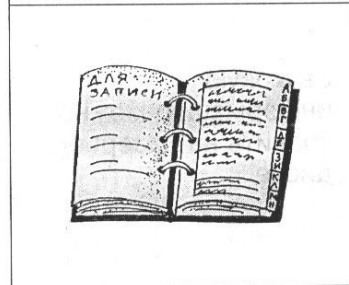 ДЛЯ
ЗАПИСИ
А
Б
В
Г
ДЕ
З
И
К
Л
Н